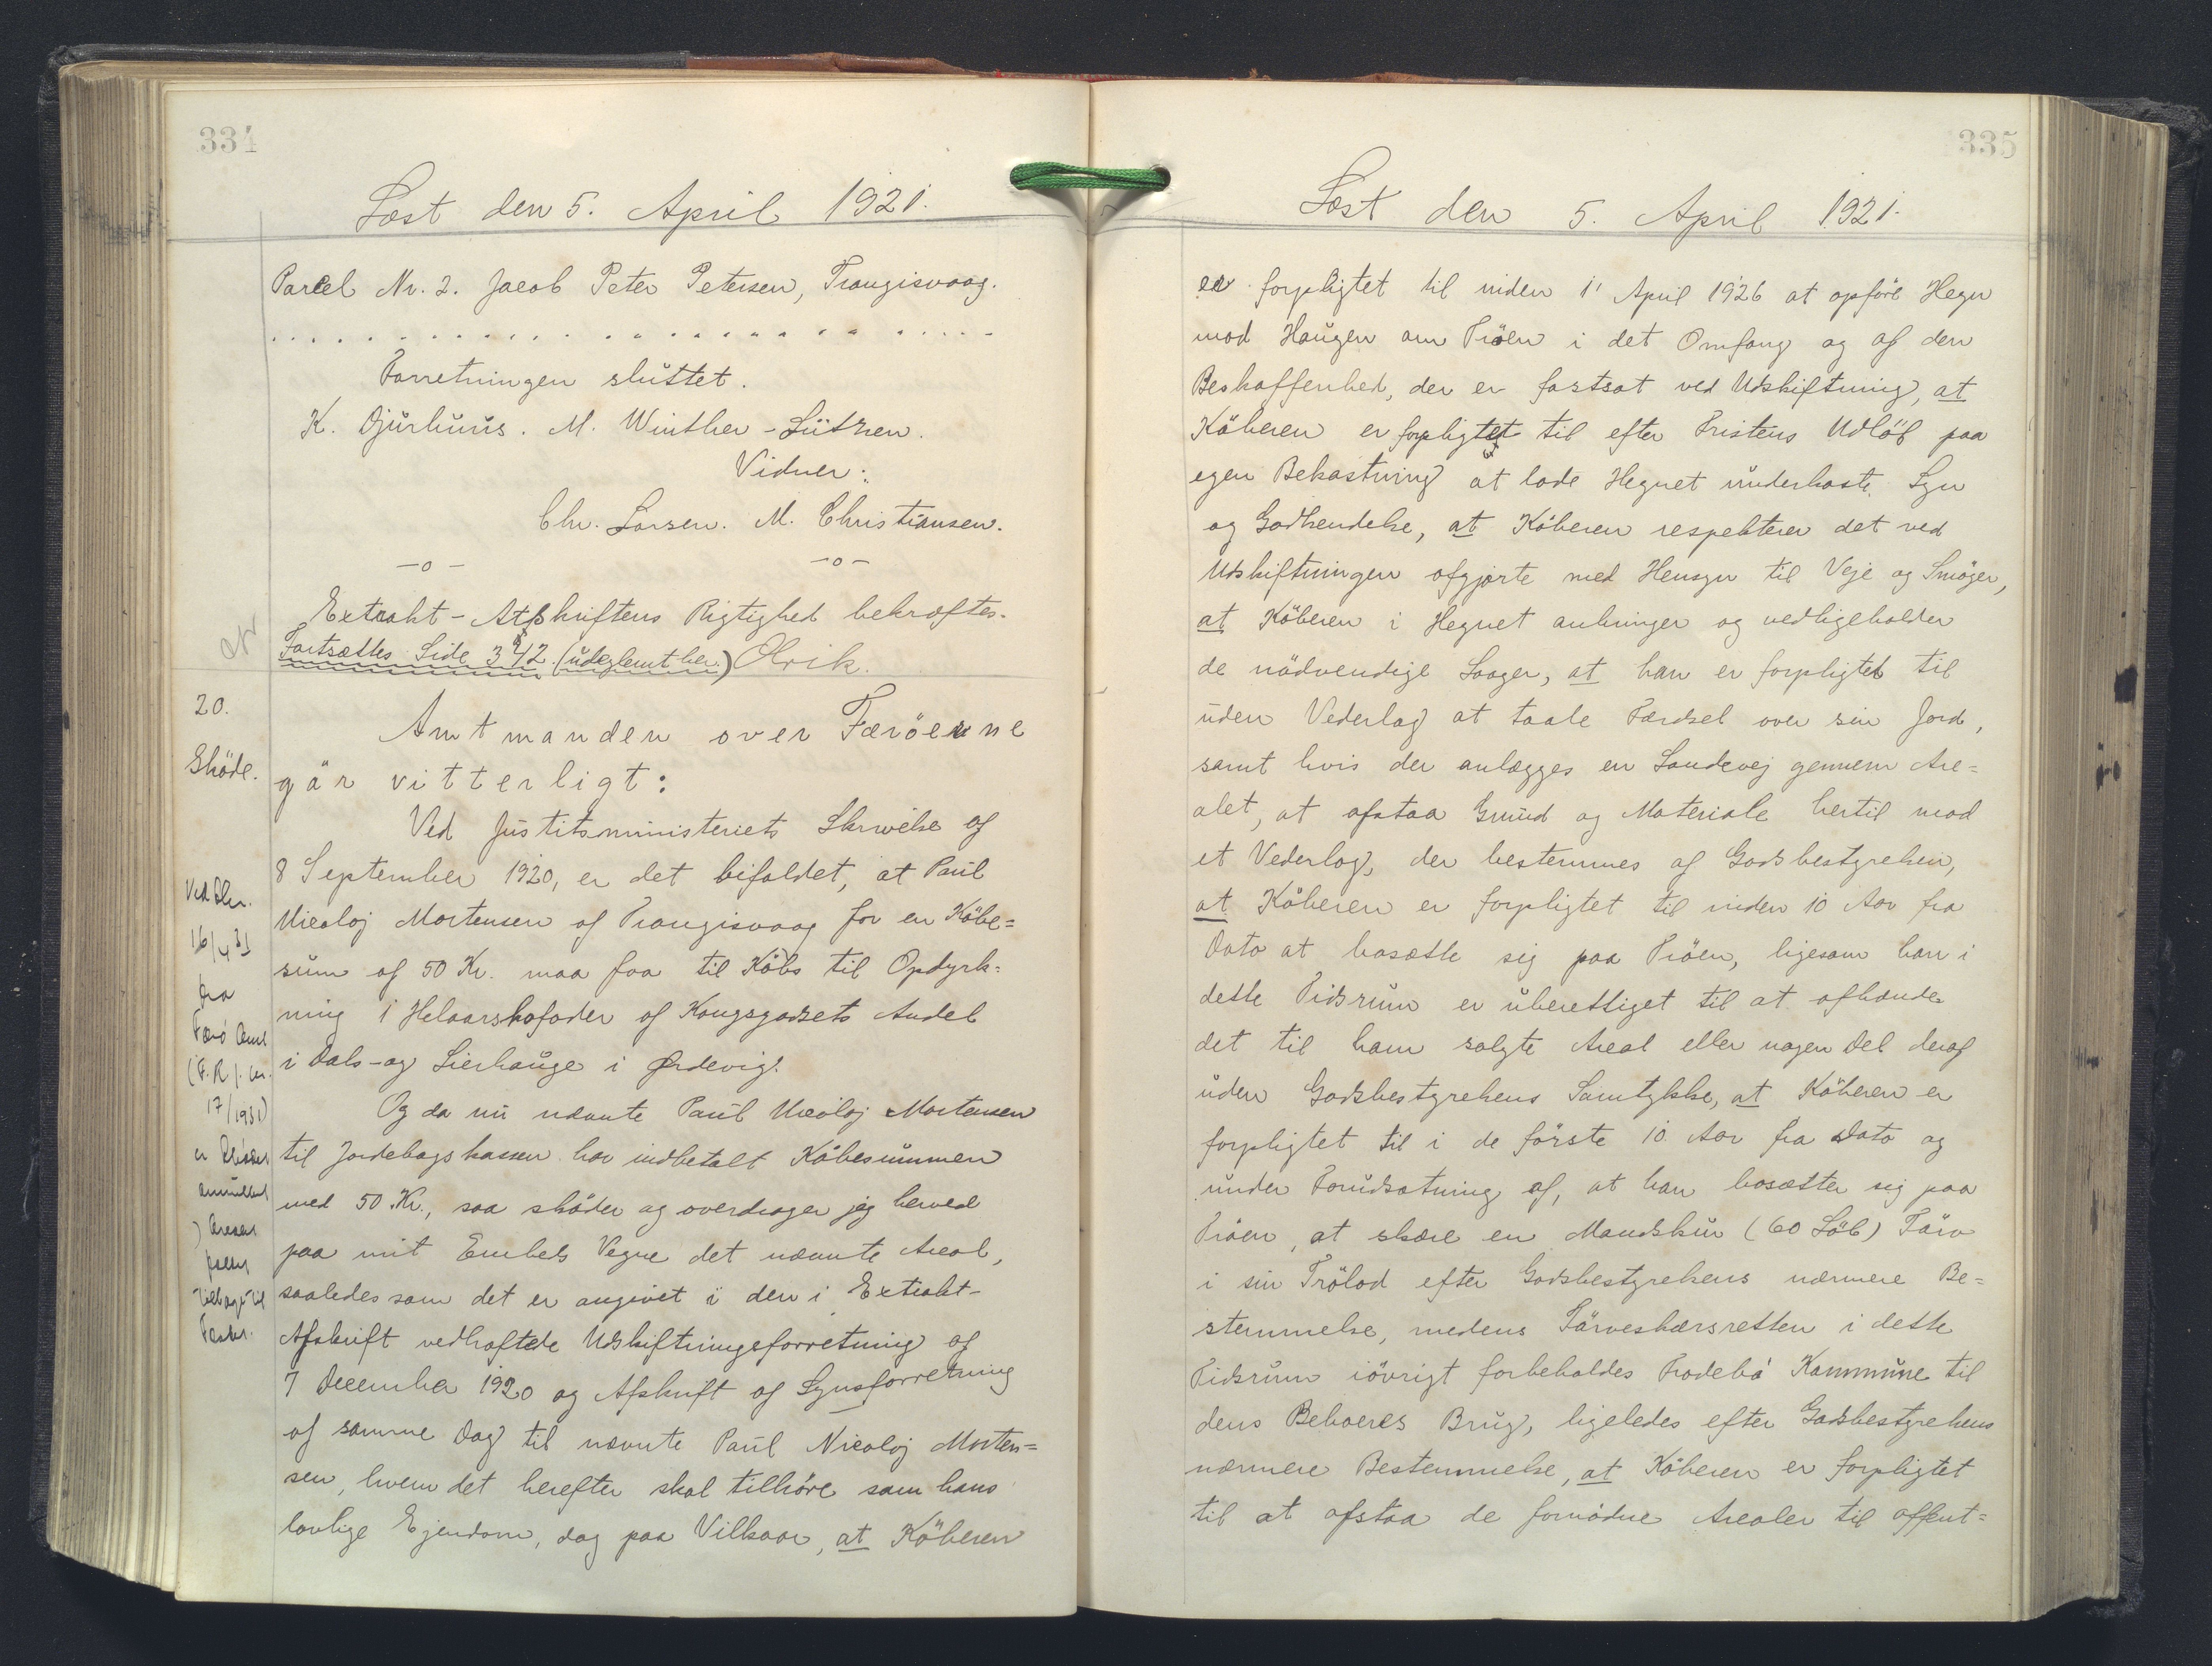 334
Læst den 5. April 1921.
Parcel Nr. 2. Jacob Peter Petersen, Trangisvaag.
Forretningen sluttet.
K. Djurhuus. M. Winther-Lützen.
Vidner:
Chr. Larsen. M. Christiansen.
-o- -o-
Extrakt-Afskriftens Rigtighed bekræftes.
Fortsættes Side 342 (udeglemt her.) Olrik.
20.
Skøde.
Amtmanden over Færöerne
gör vitterligt:
Ved Justitsministeriets Skrivelse af
8 September 1920, er det bifaldet, at Paul
Nicolaj Mortensen af Trangisvaag for en Købe=
sum af 50 Kr. maa faa til Købs til Opdyrk-
ning 1 Helaarskofoder af Kongsgodsets Andel
i Dals- og Lierhauge i Ørdevig.
Og da nu nævnte Paul Nicolaj Mortensen
til Jordebogskassen har indbetalt Købesummen
med 50 Kr., saa skøder og overdrager jeg herved
paa mit Embeds Vegne det nævnte Areal,
saaledes som det er angivet i den i Extrakt-
Afskrift vedhæftede Udskiftningsforretning af
7 December 1920 og Afskrift af Synsforretning
af samme Dag til nævnte Paul Nicolaj Morten=
sen, hvem det herefter skal tilhøre som hans
lovlige Ejendom, dog paa Vilkaar, at Köberen
16/4 31
fra
Færø Amt
17/1931)
er
annulleret
Arealet
falder
tilbage til
335
Læst den 5. April 1921.
er forpligtet til inden 1' April 1926 at opføre Hegn
mod Haugen om Tröen i det Omfang og af den
Beskaffenhed, der er fastsat ved Udskiftning, at
Köberen er forpligtet til efter Fristens Udløb paa
egen Bekostning at lade Hegnet underkaste Syn
og Godkendelse, at Köberen respekterer det ved
Udskiftningen afgjorte med Hensyn til Veje og Smöger,
at Köberen i Hegnet anbringer og vedligeholder
de nødvendige Laager, at han er forpligtet til
uden Vederlag at taale Færdsel over sin Jord,
samt hvis der anlægges en Landevej gennem Are=
alet, at afstaa Grund og Materiale hertil mod
et Vederlag, der bestemmes af Godsbestyrelsen,
at Köberen er forpligtet til inden 10 Aar fra
Dato at bosætte sig paa Tröen, ligesom han i
dette Tidsrum er uberettiget til at afhænde
det til ham solgte Areal eller nogen Del deraf
uden Godsbestyrelsens Samtykke, at Köberen er
forpligtet til i de første 10 Aar fra Dato og
under Forudsætning af, at han bosætter sig paa
Tröen, at skære en Mandskur (60 Löb) Törv
i sin Trölod efter Godsbestyrelsens nærmere Be=
stemmelse, medens Törveskærsretten i dette
Tidsrum iøvrigt forbeholdes Frodebö Kommune til
dens Beboeres Brug, ligeledes efter Godsbestyrelsens
nærmere Bestemmelse, at Köberen er forpligtet
til at afstaa de fornødne Arealer til offent=